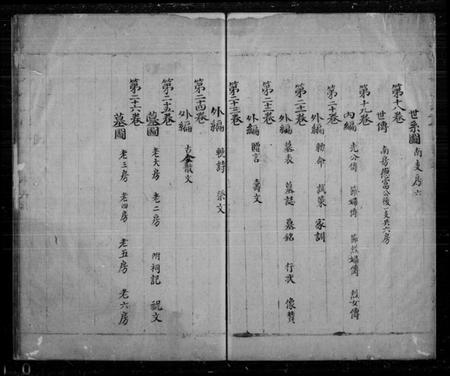 世系圖 南支房六
第十八卷
世傳 南房應富公後一支共六房
第十九卷
內編 先公傳 節婦傳 節烈婦傳 烈女傳
第二十卷
外編 勅命 試策 家訓
第二十一卷
外編 墓表 墓誌 墓銘 行狀 像贊
第二十二卷
外編 贈言 壽文
第二十三卷
外編 輓詩 祭文
第二十四卷
外編 古今散文
第二十五卷
墓圖 老大房 老二房 附祠記 祝文
第二十六卷
墓圖 老三房 老四房 老五房 老六房